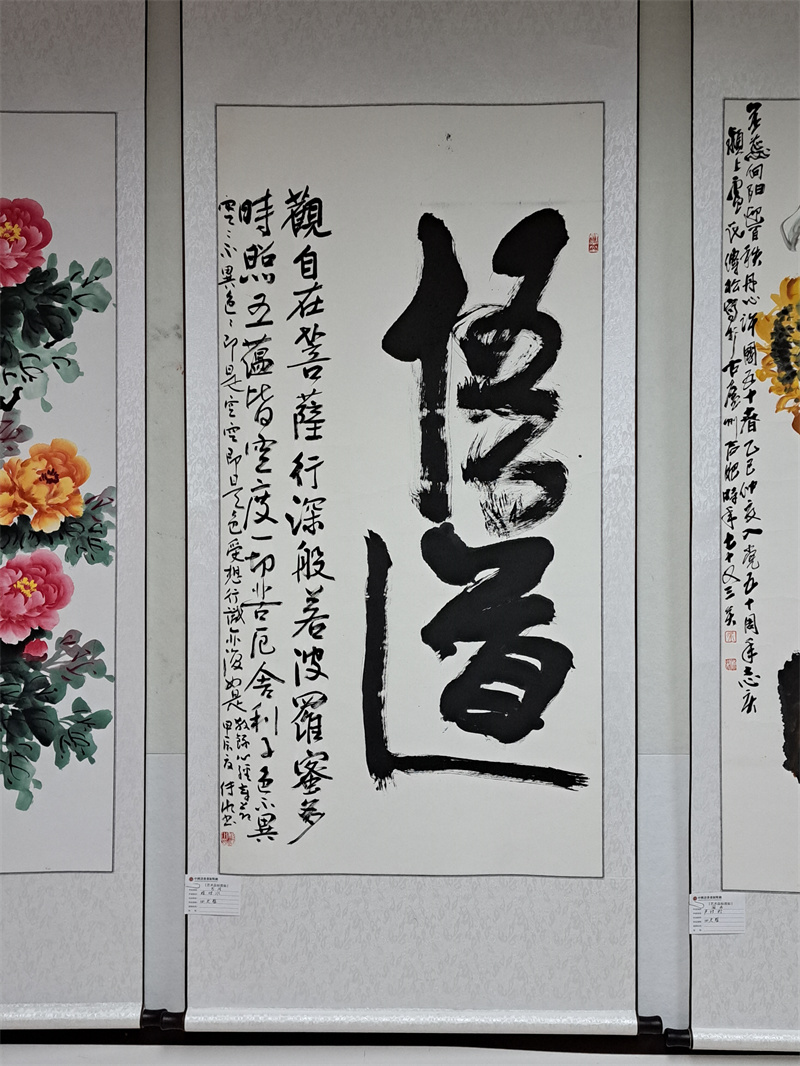 悟道
觀自在菩薩行深般若波羅蜜多
時照五蘊皆空度一切苦厄舍利子色不異
空空不異色色即是空空即是色受想行識亦復如是
敬錄心經句
甲辰夏
金蕊向阳迎百秩丹心許國五十春乙巳仲夏入党五十周年志庆
颍上
時年七十又三矣